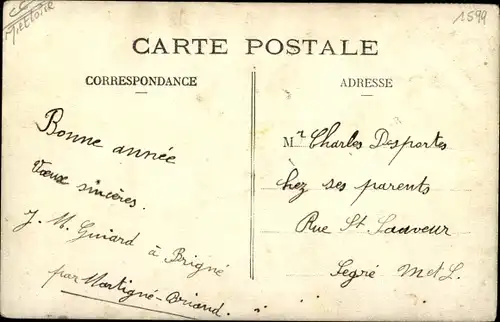 M et Loire
1599
CARTE POSTALE
CORRESPONDANCE
ADRESSE
Bonne année
Vœux sincères.
J. M. Guiard à Brigné
par Martigné-Briand.
Mr Charles Desportes
chez ses parents
Rue St Sauveur
Segré M et L.